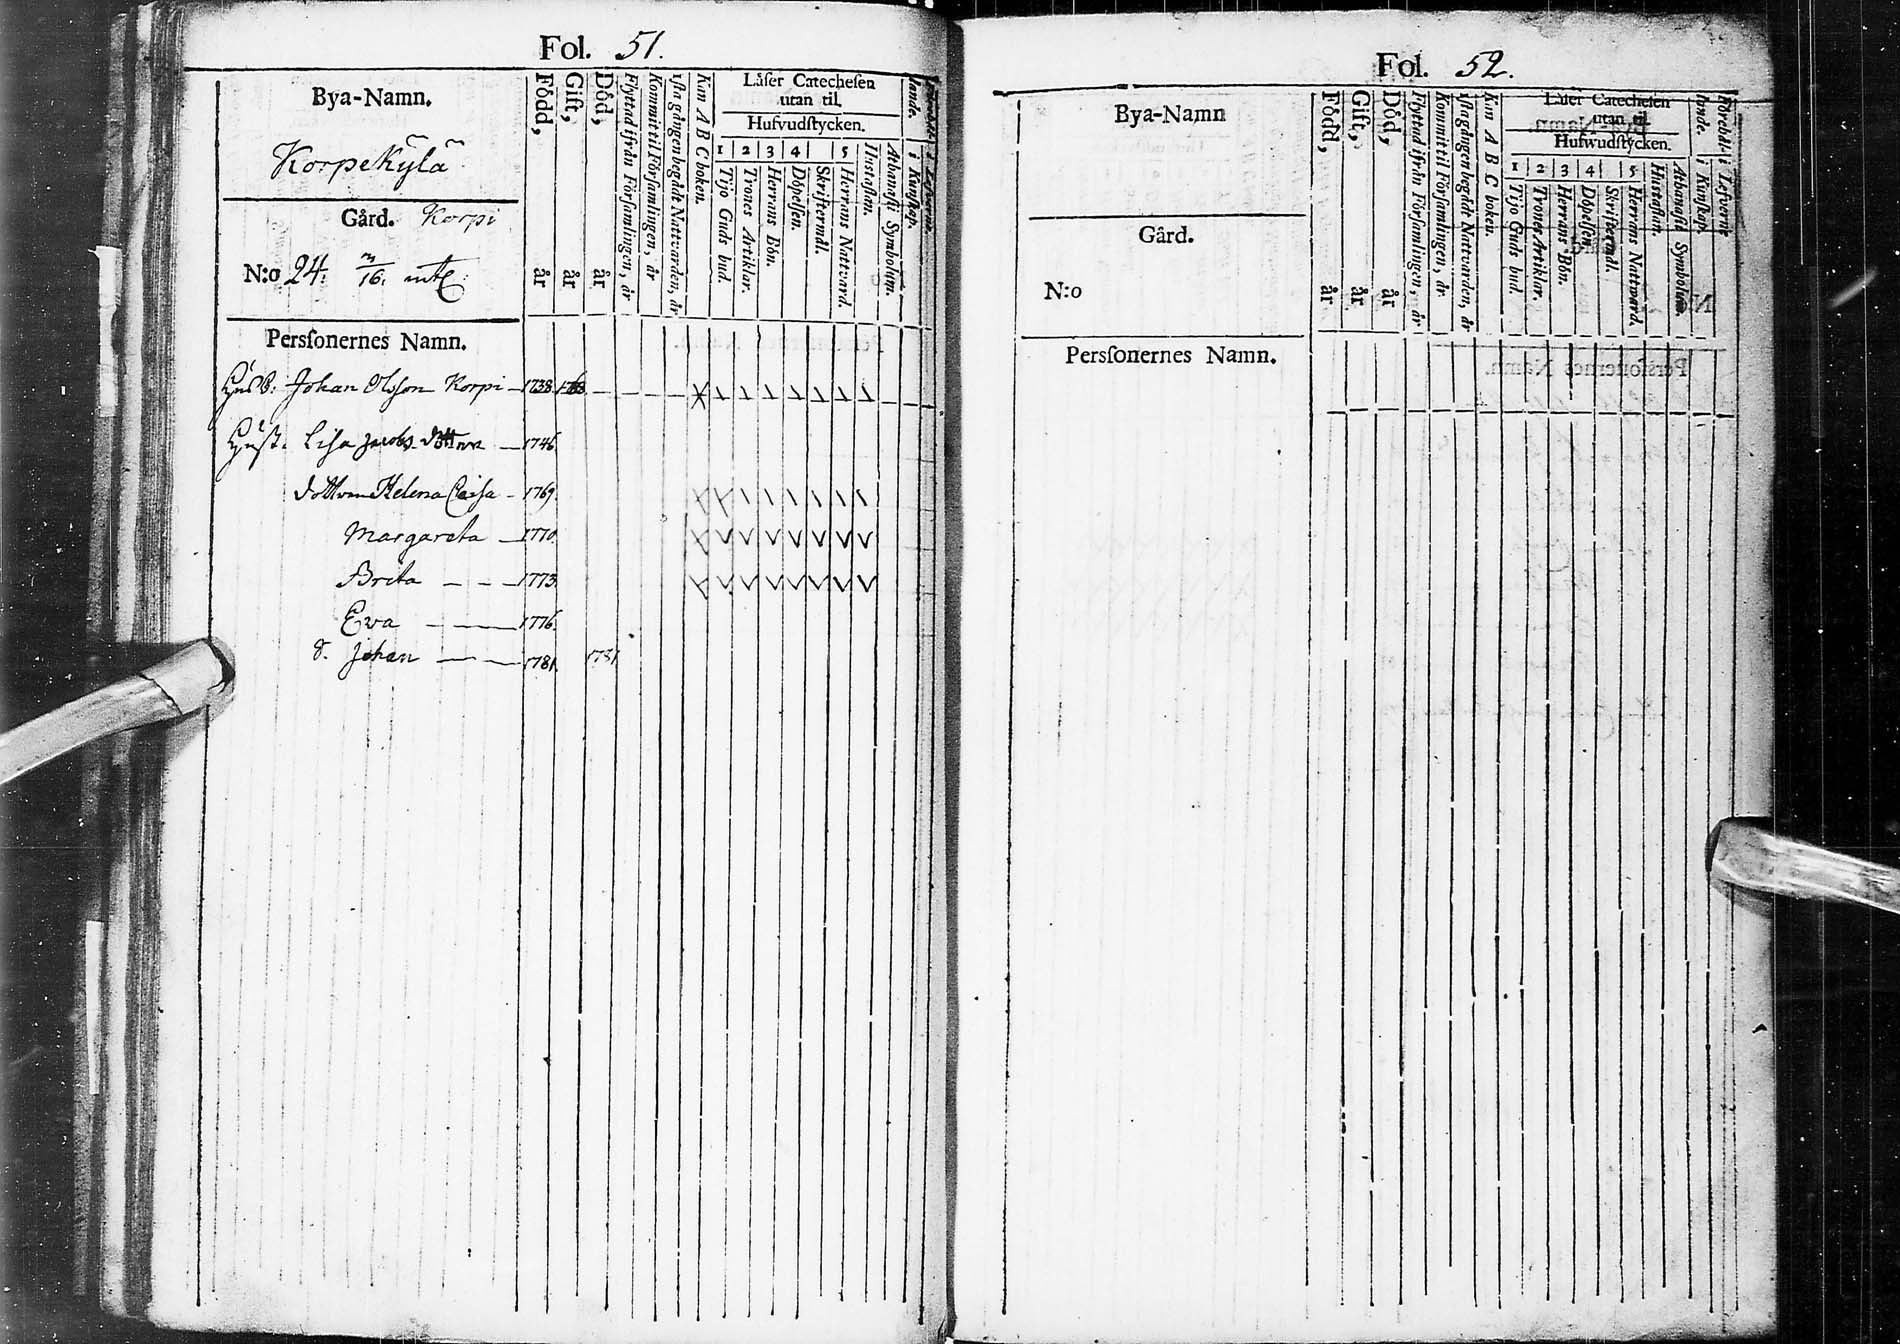 Fol. 51.
Bya-Namn.
Korpekÿlä
Gård. Korpi
N:o 24. 3/16. mtl
Född, år
Gift, år
Död, år
Flyttad ifrån Församlingen, år
Kommit til Församlingen, år
1sta gången begådt Nattvarden, år
Kan A B C boken.
Läser Catechesen
utan til.
Hufvudstycken.
1 2 3 4 5
Tijo Guds bud.
Trones Artiklar.
Herrans Bön.
Döpelsen.
Skriftermål.
Herrans Nattvard.
Hustaflan.
Athanasii Symbolum.
i Kunskap.
i Lefverne.
Personernes Namn.
Husb: Johan Olsson Korpi 1738
Hust. Lisa Jacobs dotter 1746
dottren Helena Caisa 1769
Margareta 1770
Brita 1773
Ewa 1776
d. Johan 1781 1781
Fol. 52.
Bya-Namn
Gård.
N:o
Född, år
Gift, år
Död, år
Flyttad ifrån Församlingen, år
Kommit til Församlingen, år
1sta gången begådt Nattvarden, år
Kan A B C boken.
Läser Catechesen
utan til.
Hufwudstycken.
1 2 3 4 5
Tijo Guds bud.
Trones Artiklar.
Herrans Bön.
Döpelsen.
Skriftermål.
Herrans Nattward.
Hustaflan.
Athanasii Symbolum.
i Kunskap.
Förebdl: i Lefverne
Personernes Namn.